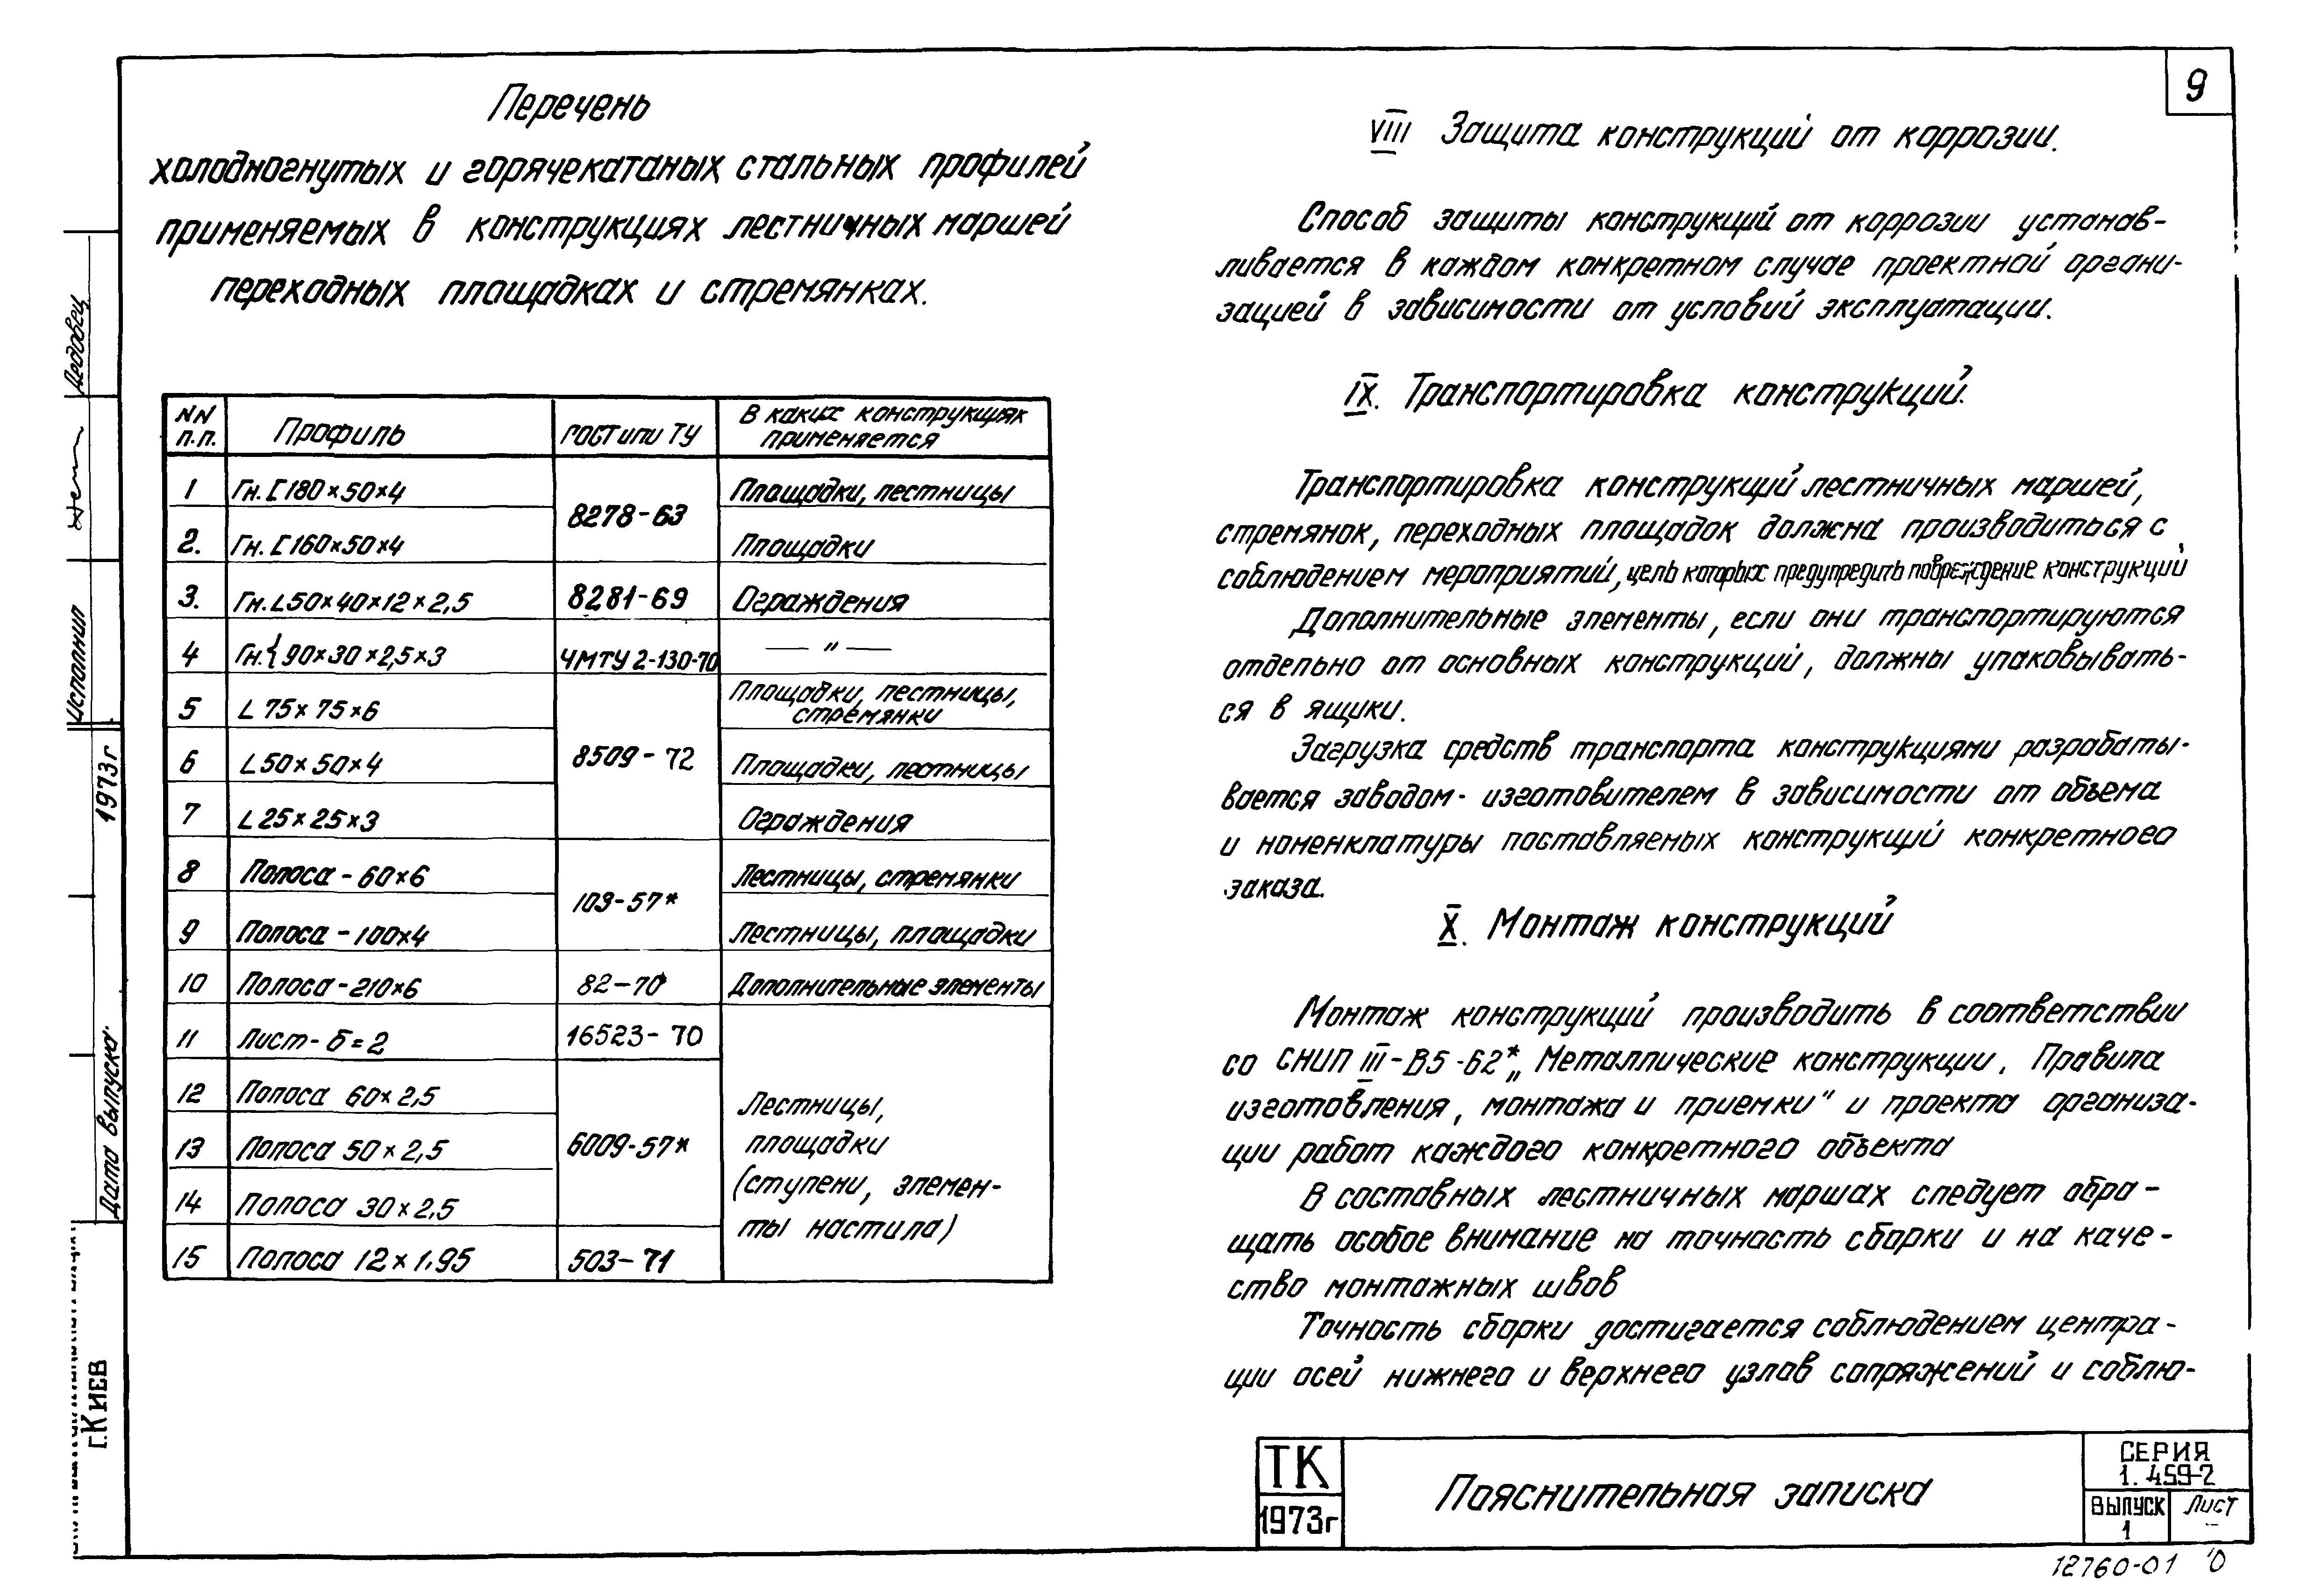 9
Перечень
холодногнутых и горячекатаных стальных профилей
применяемых в конструкциях лестничных маршей
переходных площадках и стремянках.
NN п.п. Профиль ГОСТ или ТУ В каких конструкциях применяется
1 Гн. [ 180×50×4 8278-63 Площадки, лестницы
2. Гн. [ 160×50×4 Площадки
3. Гн. L 50×40×12×2,5 8281-69 Ограждения
4 Гн. { 90×30×2,5×3 ЧМТУ 2-130-70 — " —
5 L 75×75×6 8509-72 Площадки, лестницы, стремянки
6 L 50×50×4 Площадки, лестницы
7 L 25×25×3 Ограждения
8 Полоса - 60×6 103-57* Лестницы, стремянки
9 Полоса - 100×4 Лестницы, площадки
10 Полоса - 210×6 82-70 Дополнительные элементы
11 Лист - б=2 16523-70
12 Полоса 60×2,5 6009-57* Лестницы,
13 Полоса 50×2,5 площадки
14 Полоса 30×2,5 (ступени, элемен-
15 Полоса 12×1.95 503-71 ты настила)
VIII Защита конструкций от коррозии.
Способ защиты конструкций от коррозии устанав-
ливается в каждом конкретном случае проектной органи-
зацией в зависимости от условий эксплуатации.
IX. Транспортировка конструкций.
Транспортировка конструкций лестничных маршей,
стремянок, переходных площадок должна производиться с
соблюдением мероприятий, цель которых предупредить повреждение конструкций
Дополнительные элементы, если они транспортируются
отдельно от основных конструкций, должны упаковывать-
ся в ящики.
Загрузка средств транспорта конструкциями разрабаты-
вается заводом-изготовителем в зависимости от объема
и номенклатуры поставляемых конструкций конкретного
заказа.
X. Монтаж конструкций
Монтаж конструкций производить в соответствии
со СНИП III-В5-62* „Металлические конструкции. Правила
изготовления, монтажа и приемки" и проекта организа-
ции работ каждого конкретного объекта
В составных лестничных маршах следует обра-
щать особое внимание на точность сборки и на каче-
ство монтажных швов
Точность сборки достигается соблюдением центра-
ции осей нижнего и верхнего узлов сопряжений и соблю-
ТК
1973г
Пояснительная записка
СЕРИЯ
1.459-2
ВЫПУСК
1
Лист
–
12760-01 10
Исполнил
Дедовец
Дата выпуска
1973г
г.Киев